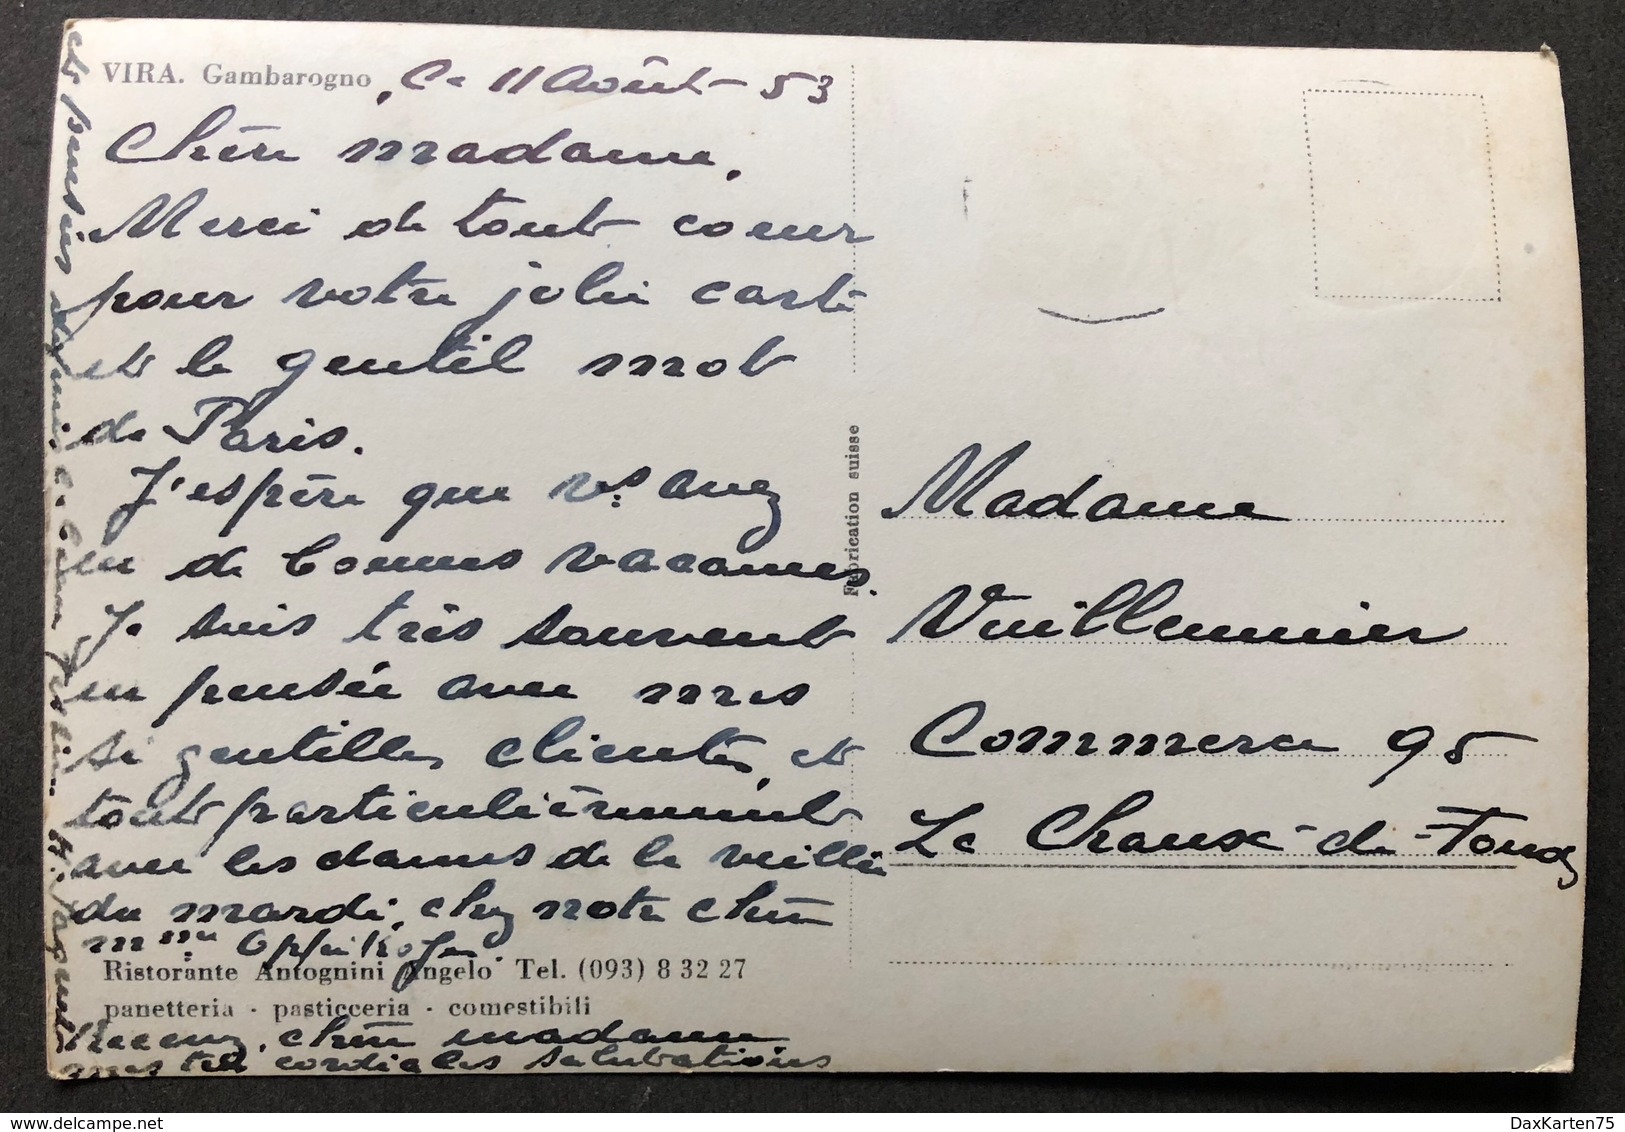 VIRA. Gambarogno, Ce 11 Août - 53
Chère madame,
Merci de tout coeur
pour votre jolie carte
et le gentil mot
de Paris.
J'espère que vs. avez
eu de bonnes vacances.
Je suis très souvent
en pensée avec mes
si gentilles clientes, et
tout particulièrement
avec les dames de la veillée
du mardi, chez notre chère
mme Opplikofer.
Ristorante Antognini Angelo Tel. (093) 8 32 27
panetteria - pasticceria - comestibili
Recevez, chère madame
mes très cordiales salutations
et pensées depuis le beau Tessin.
Fabrication suisse
Madame
Vuilleumier
Commerce 95
La Chaux-de-Fonds
DaxKarten75